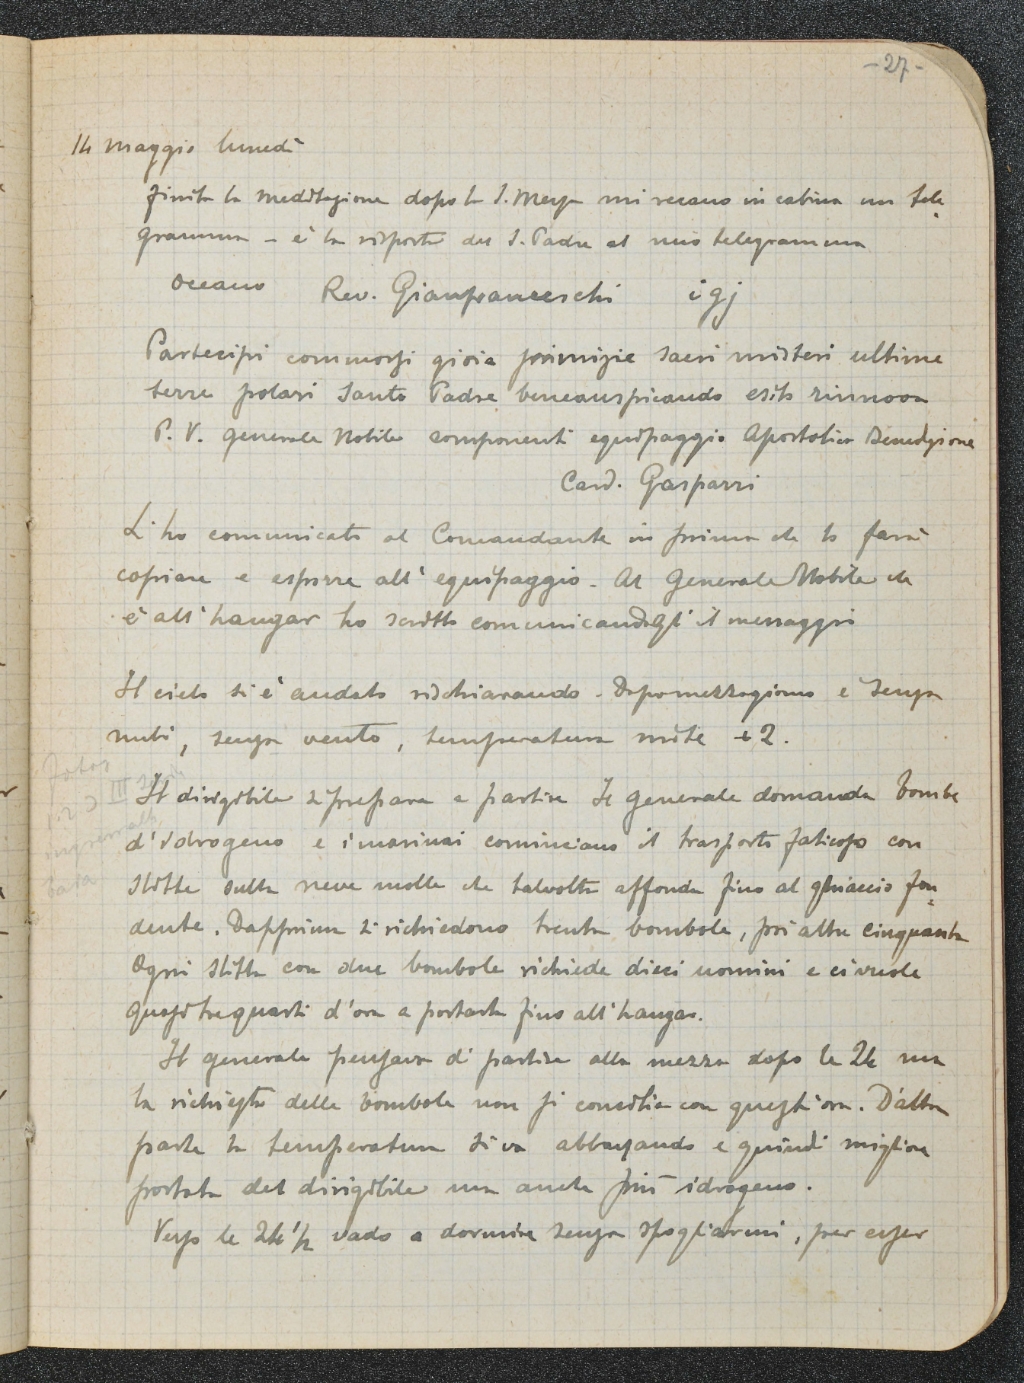 -27-
14 maggio lunedì
finita la meditazione dopo la S. Messa mi recano in cabina un tele
gramma - è la risposta del S. Padre al mio telegramma
Oceano Rev. Gianfranceschi igj
Partecipi commossi gioia primizie sacri misteri ultime
terre polari Santo Padre beneauspicando esito rinnova
P. V. generale Nobile componenti equipaggio Apostolica Benedizione
Card. Gasparri
L'ho comunicato al Comandante in prima che lo farà
copiare e esporre all'equipaggio - Al Generale Nobile che
è all'hangar ho scritto comunicandogli il messaggio
Il cielo si è andato rischiarando - Dopomezzogiorno è senza
nubi, senza vento, temperatura mite +2.
Fotos
III
Il dirigibile si prepara a partire Il generale domanda bombe
d'idrogeno e i marinai cominciano il trasporto faticoso con
slitte sulla neve molle che talvolta affonda fino al ghiaccio fon
dente. Dapprima si richiedono trenta bombole, poi altre cinquanta
Ogni slitta con due bombole richiede dieci uomini e ci vuole
quasi tre quarti d'ora a portarla fino all'hangar.
Il generale pensava di partire alla mezza dopo le 24 ma
la richiesta delle bombole non si concilia con quest'ora. D'altra
parte la temperatura si va abbassando e quindi migliora
portata del dirigibile ma anche più idrogeno.
Verso le 24 1/2 vado a dormire senza spogliarmi, per esser